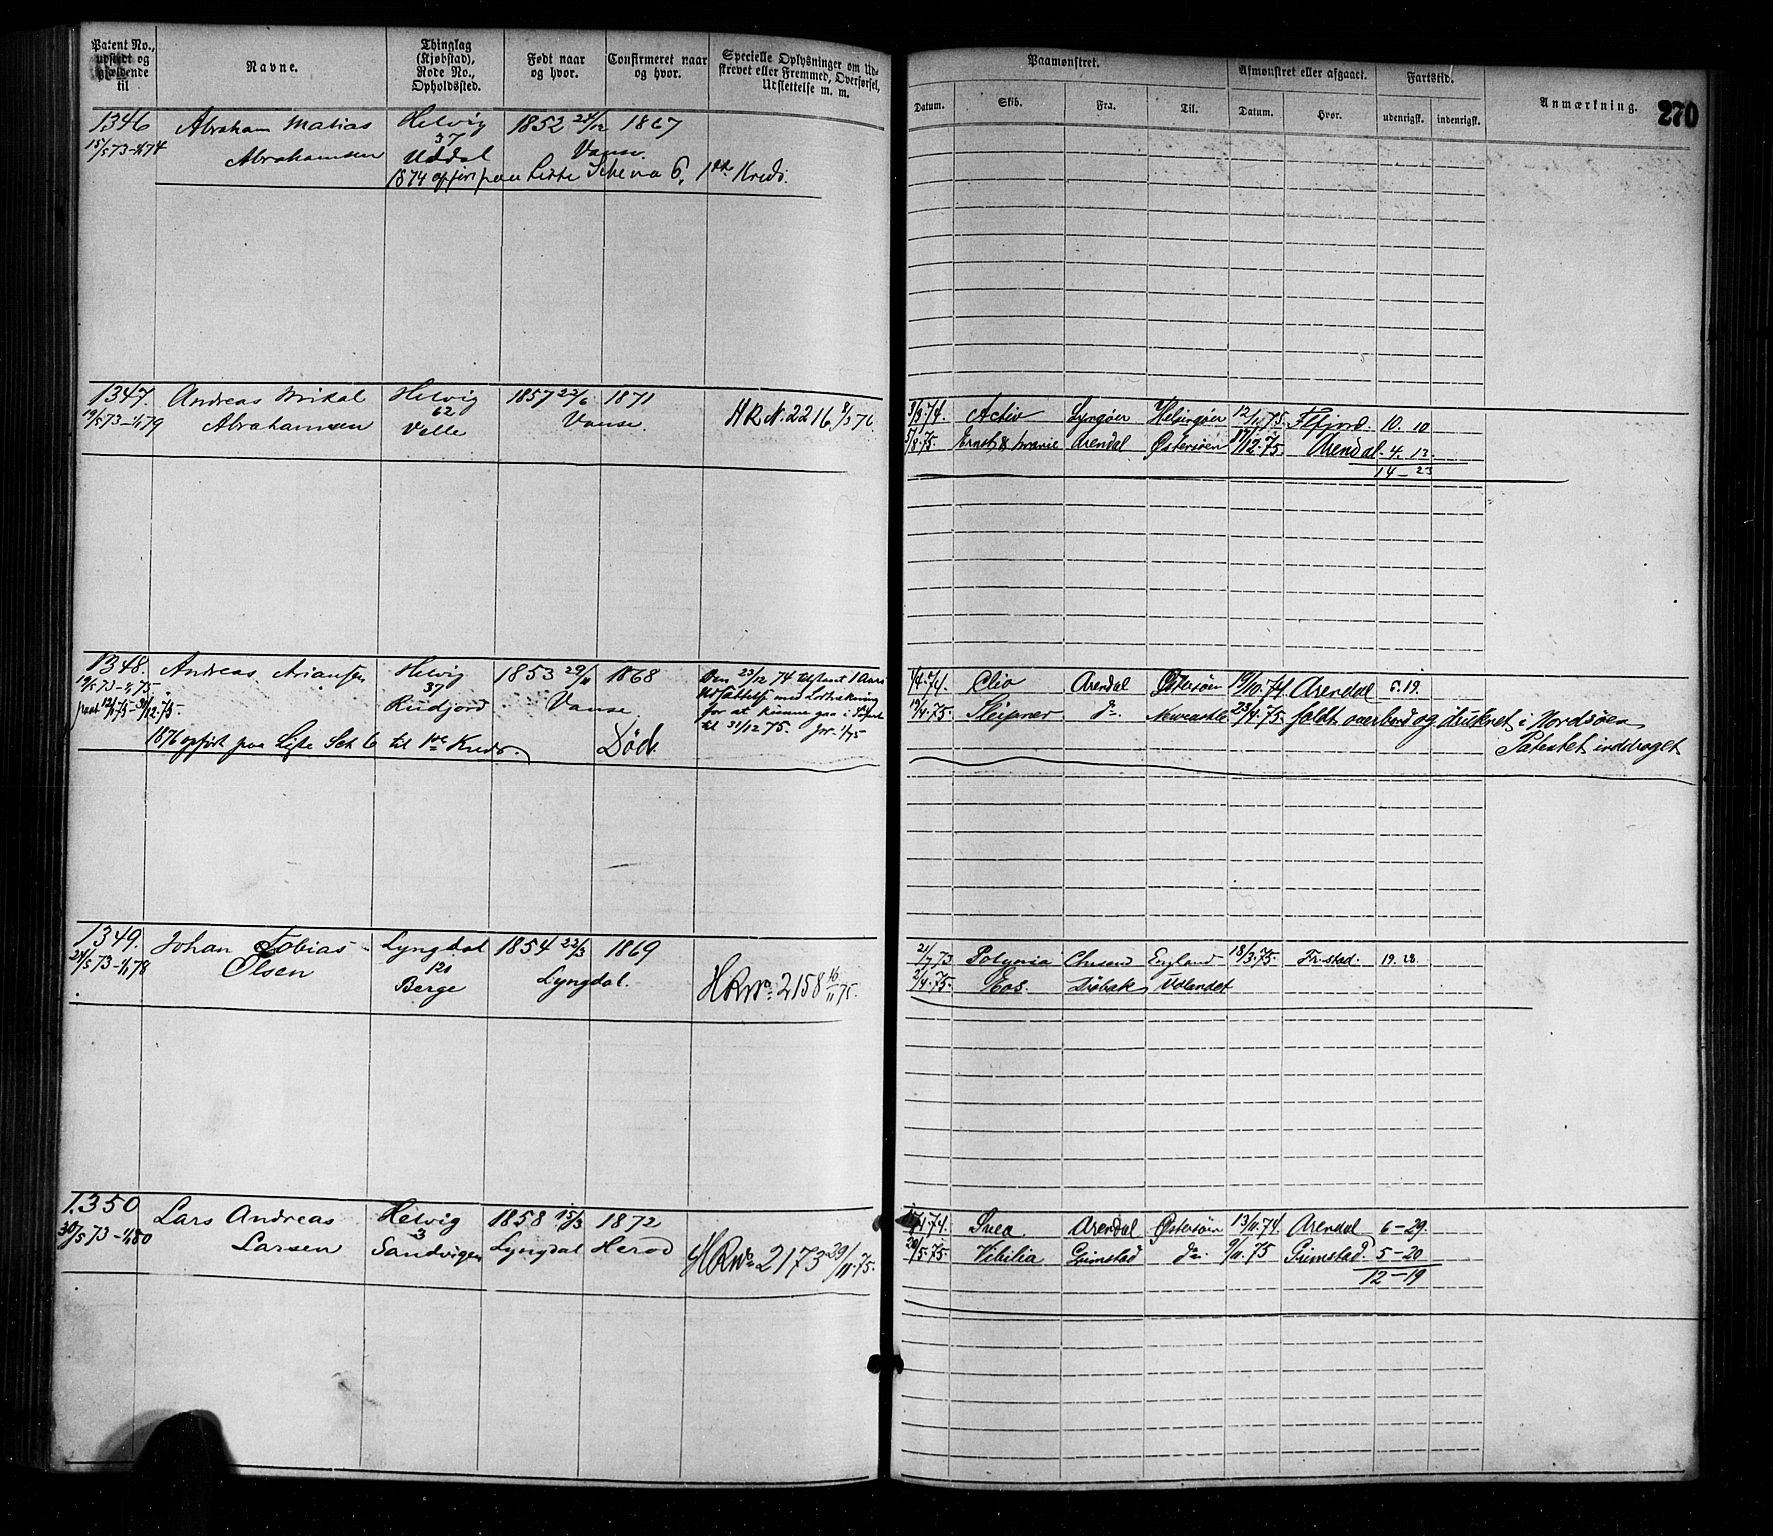 Patent No., udstedt og gjældende til
Navne.
Thinglag (Kjøbstad), Rode No., Opholdssted.
Født naar og hvor.
Confirmeret naar og hvor.
Specielle Oplysninger om Udskrevet eller Fremmed, Overførsel, Udslettelse m. m.
Paamønstret.
Afmønstret eller afgaaet.
Fartstid.
Anmærkning.
270
Datum.
Skib.
Fra.
Til.
Datum.
Hvor.
udenrigsk.
indenrigsk.
1346 Abraham Matias Helvig 1852 24/12 1867
15/5 73-1/1 74 Abrahamsen 37 Uddal Vanse.
1874 opført paa Liste Schema 6, 1ste Kreds.
1347. Andreas Mikal Helvig 1857 22/6 1871
19/5 73-1/1 79 Abrahamsen 62 Velle Vanse. H R N. 2216 9/5 76
3/9 74. Activ Lyngøer Helsingøer 12/1 75. Flfjord. 10. 10
5/8 75. Ernst & Marie Arendal Østersøen 17/12 75. Arendal. 4. 13.
14-23
1348. Andreas Ariansen Helvig 1853 29/11 1868
19/5 73-1/1 75. 37
12/1 75-31/12 75. Riidjord Vanse
Den 23/12 74 tilstaaet 1 Aars
Udsættelse med Lodtrækning
for at kunne gaa i Fart
til 31/12 75.
1876 opført paa Liste Sch 6 til 1ste Kreds. Død.
1/4 74. Clio Arendal Østersøen 19/10 74 Arendal 5. 19.
19/4 75. Sleipner do Newcastle 23/4 75. faldt overbord og druknet i Nordsøen
Patentet inddraget
1349. Johan Tobias Lyngdal 1854 22/3 1869
24/5 73-1/1 78 Olsen 121 Berge Lyngdal. H R No 2158 16/11 75.
21/7 73 Polynia England 18/3 75. Fr.stad. 19. 28.
2/4 75. Eos. Drøbak Udlandet
1350 Lars Andreas Helvig 1858 15/3 1872
30/5 73-1/1 80 Larsen 3 Sandvigen Lyngdal Herod H R No 2173 29/11 75.
74. Svea Arendal Østersøen 13/11 74. Arendal 6-29.
20/5 75. Vibilia Grimstad do 9/11 75 Grimstad. 5-20
12-19